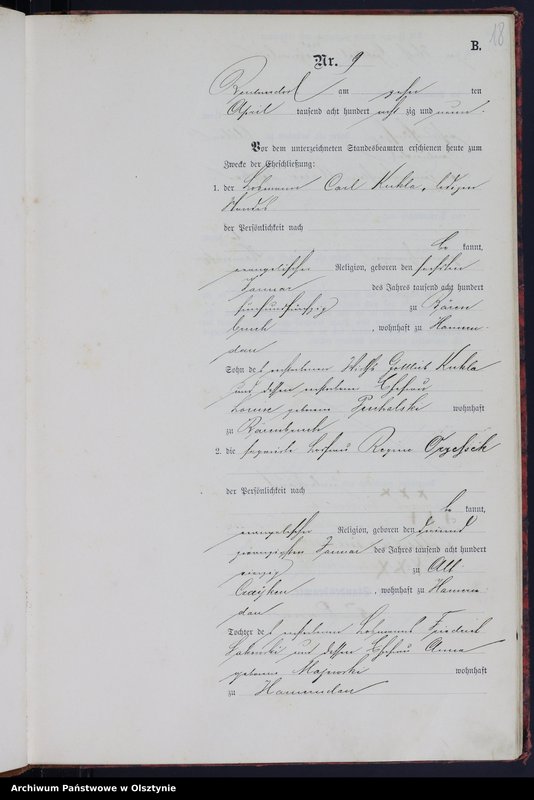 18
B.
Nr. 9
am zehn ten
April tausend acht hundert acht zig und neun.
Vor dem unterzeichneten Standesbeamten erschienen heute zum
Zwecke der Eheschließung:
1. der Losmann Carl Kukla, ledigen
Standes
der Persönlichkeit nach
be kannt,
evangelischer Religion, geboren den
Januar des Jahres tausend acht hundert
fünfundfünfzig zu Bären
bruch, wohnhaft zu
dau
Sohn des verstorbenen Wirths Gottlieb Kukla
und dessen verstorbenen Ehefrau
Louise geborene wohnhaft
zu Bärenbruch
2. die separirte Losfrau Regine Orzessek
der Persönlichkeit nach
be kannt,
evangelischer Religion, geboren den dreiund
zwanzigsten Januar des Jahres tausend acht hundert
vierzig zu Alt
, wohnhaft zu
dau
Tochter des verstorbenen Losmanns Friedrich
und dessen Ehefrau Anna
geborene Majewski wohnhaft
zu
Archiwum Państwowe w Olsztynie